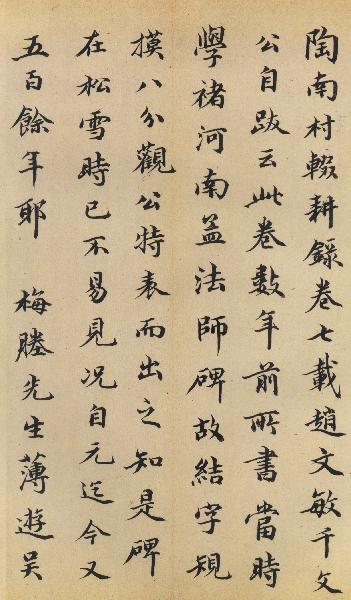 陶南村輟耕錄卷七載趙文敏千文
公自跋云此卷數年前所書當時
學褚河南孟法師碑故結字規
摸八分觀公特表而出之知是碑
在松雪時已不易見況自元迄今又
五百餘年耶 梅塍先生薄遊吴